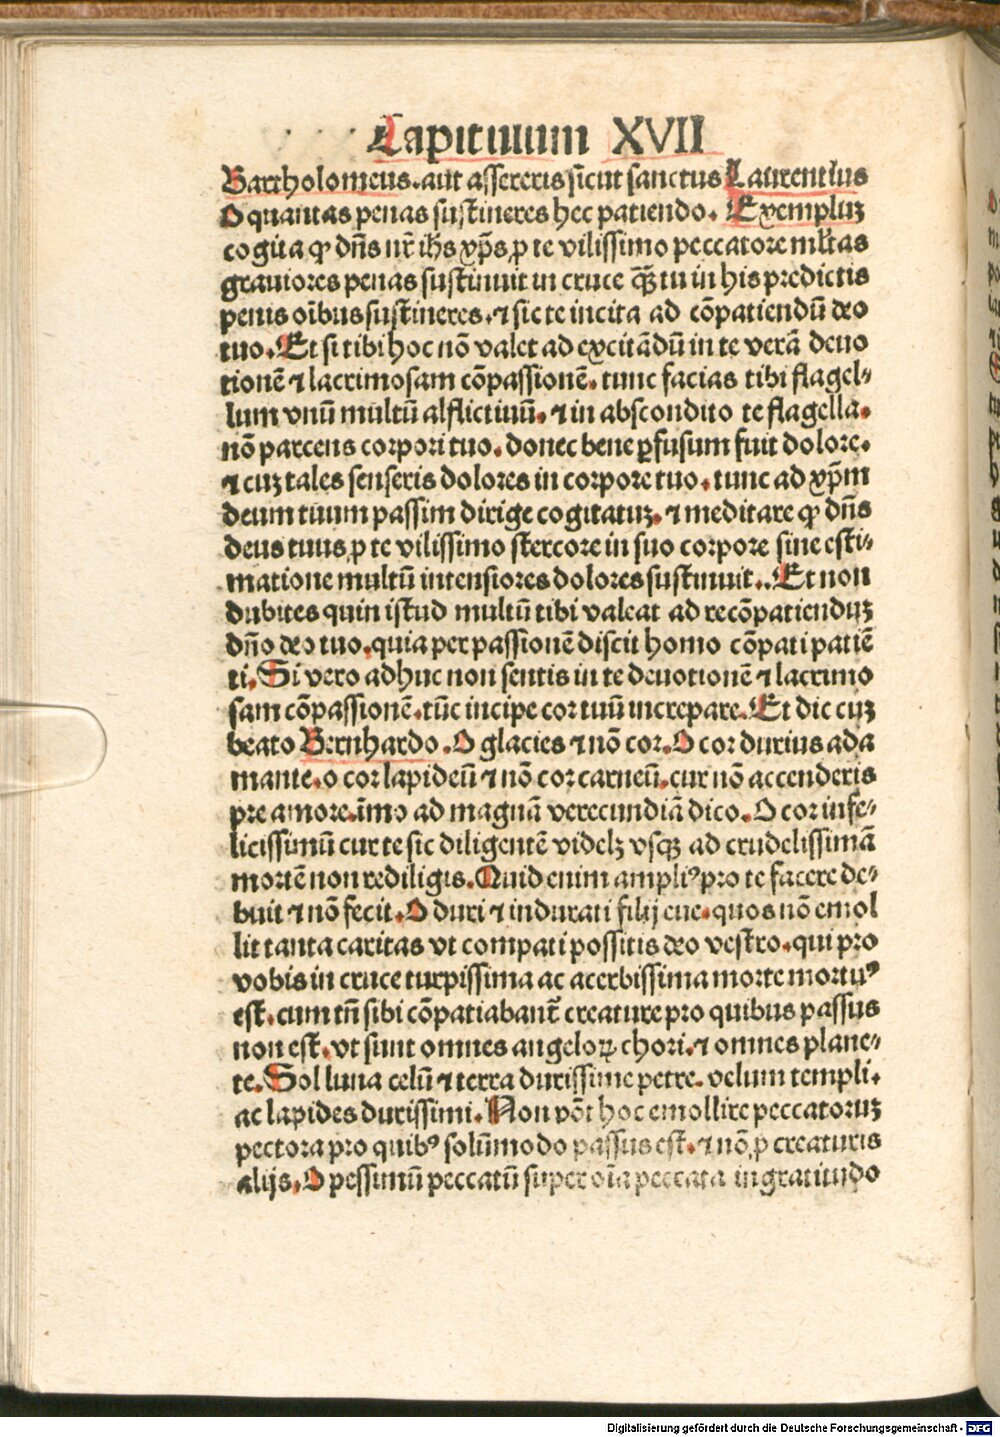 Capitulum XVII
Bartholomeus. aut assereris sicut sanctus Laurentius
O quantas penas sustineres hec patiendo. Exempluꝫ
cogita qꝫ dñs nr̃ ihs xp̃s ꝓ te vilissimo peccatore ml̃tas
grauiores penas sustinuit in cruce q̃ꝫ tu in his predictis
penis oĩbus sustineres. ⁊ sic te incita ad cõpatiendũ deo
tuo. Et si tibi hoc nõ valet ad excitãdũ in te verã deuo
tionẽ ⁊ lacrimosam cõpassionẽ. tunc facias tibi flagel⸗
lum vnũ multũ afflictiuũ. ⁊ in abscondito te flagella.
nõ parcens corpori tuo. donec bene ꝑfusum fuit dolore.
⁊ cuꝫ tales senseris dolores in corpore tuo. tunc ad xp̃m
deum tuum passim dirige cogitatuꝫ. ⁊ meditare qꝫ dñs
deus tuus ꝓ te vilissimo stercore in suo corpore sine esti⸗
matione multũ intensiores dolores sustinuit.. Et non
dubites quin istud multũ tibi valeat ad recõpatienduꝫ
dño deo tuo. quia per passionẽ discit homo cõpati patiẽ
ti. Si vero adhuc non sentis in te deuotionẽ ⁊ lacrimo
sam cõpassionẽ. tũc incipe cor tuũ increpare. Et dic cuꝫ
beato Bernhardo. O glacies ⁊ nõ cor. O cor durius ada
mante. o cor lapideũ ⁊ nõ cor carneũ. cur nõ accenderis
pre amore. ĩmo ad magnã verecundiã dico. O cor infe⸗
licissimũ cur te sic diligentẽ videlꝫ vsqꝫ ad crudelissimã
mortẽ non rediligis. Quid enim ampliꝰ pro te facere de⸗
buit ⁊ nõ fecit. O duri ⁊ indurati filij eue. quos nõ emol
lit tanta caritas vt compati possitis deo vestro. qui pro
vobis in cruce turpissima ac acerbissima morte mortuꝰ
est. cum tñ sibi cõpatiabant̃ creature pro quibus passus
non est. vt sunt omnes angeloꝝ chori. ⁊ omnes plane⸗
te. Sol luna celũ ⁊ terra durissime petre. velum templi.
ac lapides durissimi. Non põt hoc emollire peccatoruꝫ
pectora pro quibꝰ solũmodo passus est. ⁊ nõ ꝓ creaturis
alijs. O pessimũ peccatũ super oĩa peccata ingratitudo
Digitalisierung gefördert durch die Deutsche Forschungsgemeinschaft - DFG